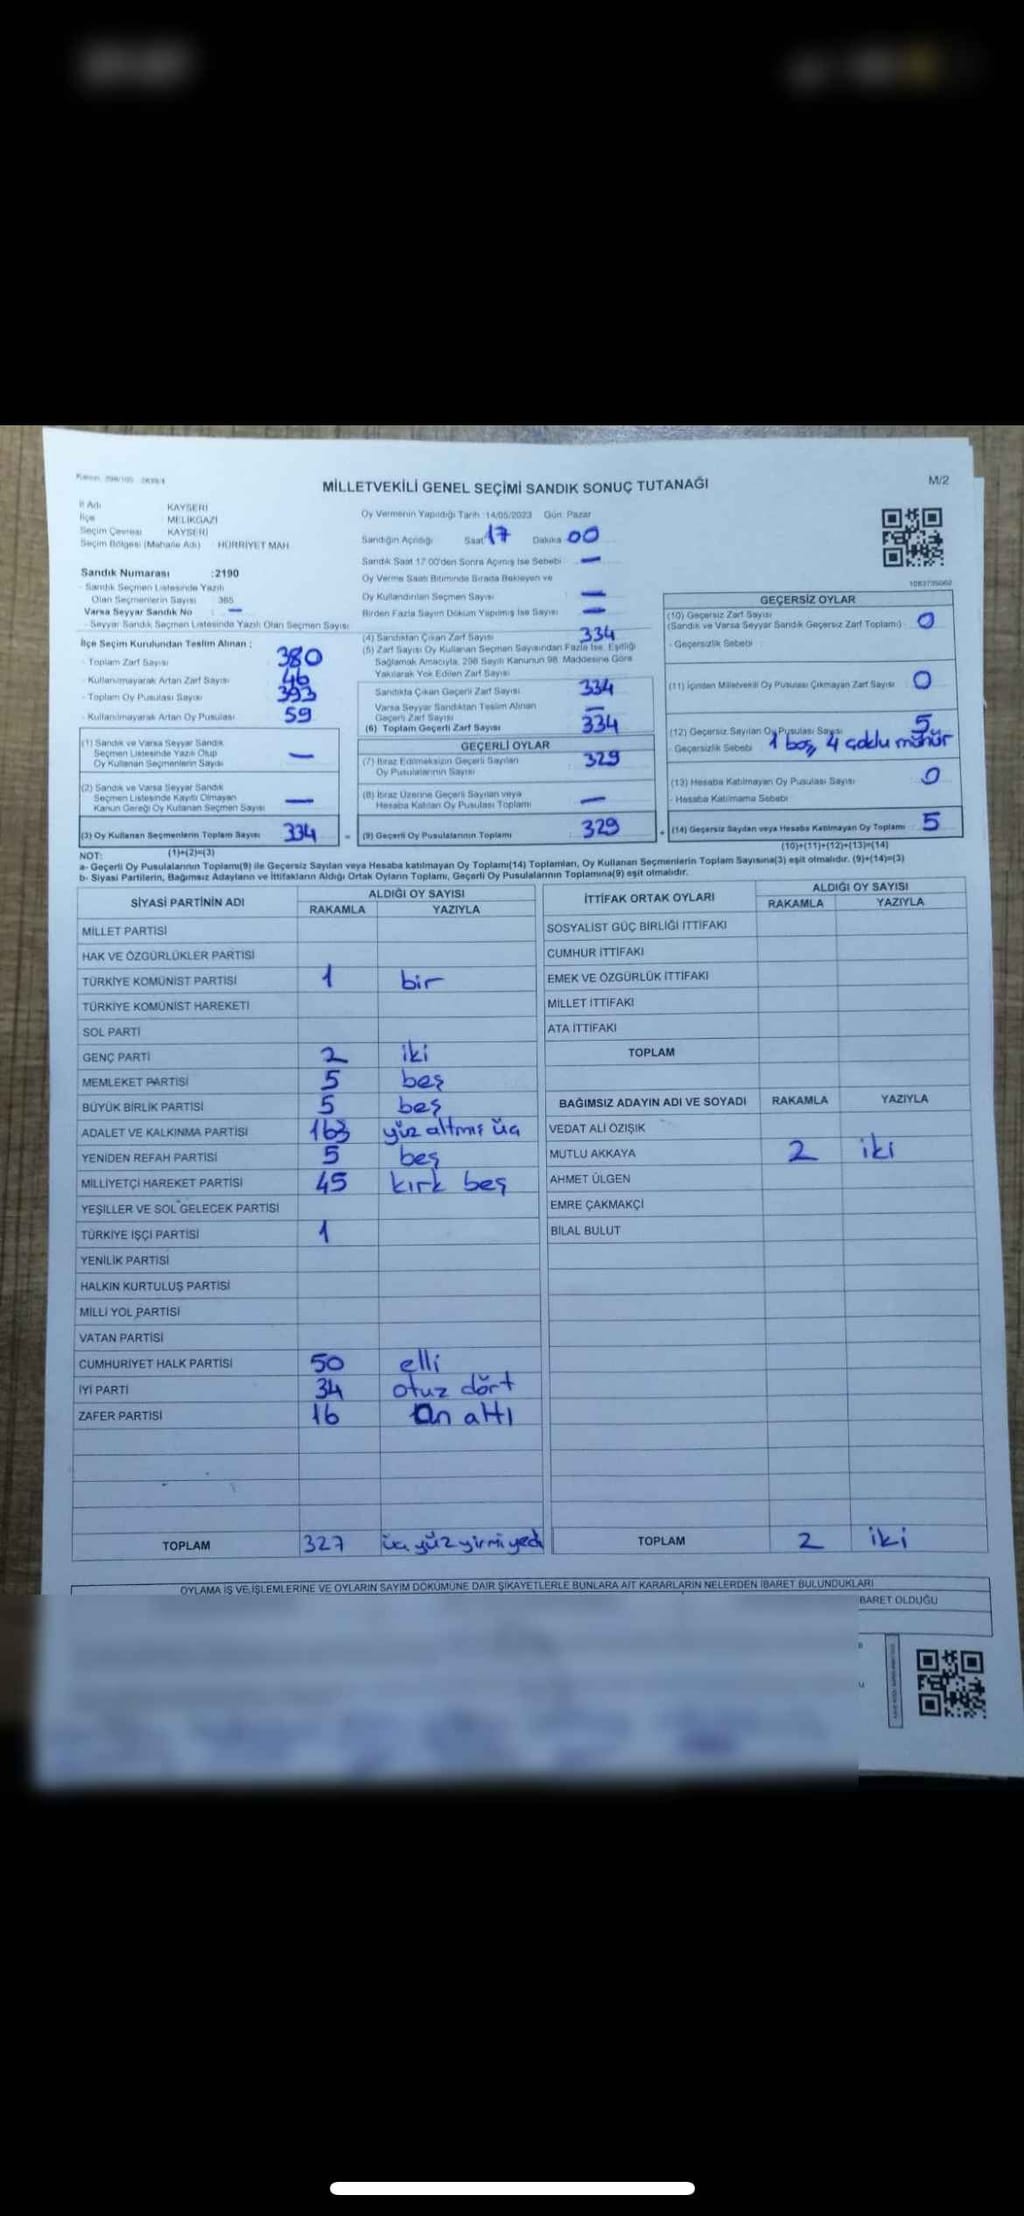 MİLLETVEKİLİ GENEL SEÇİMİ SANDIK SONUÇ TUTANAĞI
M/2
İl Adı KAYSERİ
İlçe MELİKGAZİ
Seçim Çevresi KAYSERİ
Seçim Bölgesi (Mahalle Adı) HÜRRİYET MAH
Sandık Numarası :2190
- Sandık Seçmen Listesinde Yazılı
Olan Seçmenlerin Sayısı : 365
Varsa Seyyar Sandık No : —
- Seyyar Sandık Seçmen Listesinde Yazılı Olan Seçmen Sayısı
Oy Vermenin Yapıldığı Tarih :14/05/2023 Gün: Pazar
Sandığın Açıldığı Saat 17 Dakika 00
Sandık Saat 17:00'den Sonra Açılmış İse Sebebi —
Oy Verme Saati Bitiminde Sırada Bekleyen ve
Oy Kullandırılan Seçmen Sayısı —
Birden Fazla Sayım Döküm Yapılmış İse Sayısı —
İlçe Seçim Kurulundan Teslim Alınan ;
- Toplam Zarf Sayısı 380
- Kullanılmayarak Artan Zarf Sayısı 46
- Toplam Oy Pusulası Sayısı 393
- Kullanılmayarak Artan Oy Pusulası 59
(1) Sandık ve Varsa Seyyar Sandık
Seçmen Listesinde Yazılı Olup
Oy Kullanan Seçmenlerin Sayısı —
(2) Sandık ve Varsa Seyyar Sandık
Seçmen Listesinde Kayıtlı Olmayan
Kanun Gereği Oy Kullanan Seçmen Sayısı —
(3) Oy Kullanan Seçmenlerin Toplam Sayısı 334
(1)+(2)=(3)
(4) Sandıktan Çıkan Zarf Sayısı 334
(5) Zarf Sayısı Oy Kullanan Seçmen Sayısından Fazla İse, Eşitliği
Sağlamak Amacıyla, 298 Sayılı Kanunun 98. Maddesine Göre
Yakılarak Yok Edilen Zarf Sayısı
Sandıkta Çıkan Geçerli Zarf Sayısı 334
Varsa Seyyar Sandıktan Teslim Alınan
Geçerli Zarf Sayısı —
(6) Toplam Geçerli Zarf Sayısı 334
GEÇERLİ OYLAR
(7) İtiraz Edilmeksizin Geçerli Sayılan
Oy Pusulalarının Sayısı 329
(8) İtiraz Üzerine Geçerli Sayılan veya
Hesaba Katılan Oy Pusulası Toplamı —
(9) Geçerli Oy Pusulalarının Toplamı 329
GEÇERSİZ OYLAR
(10) Geçersiz Zarf Sayısı
(Sandık ve Varsa Seyyar Sandık Geçersiz Zarf Toplamı) 0
- Geçersizlik Sebebi
(11) İçinden Milletvekili Oy Pusulası Çıkmayan Zarf Sayısı 0
(12) Geçersiz Sayılan Oy Pusulası Sayısı 5
- Geçersizlik Sebebi 1 boş, 4 çoklu mühür
(13) Hesaba Katılmayan Oy Pusulası Sayısı 0
- Hesaba Katılmama Sebebi
(14) Geçersiz Sayılan veya Hesaba Katılmayan Oy Toplamı 5
(10)+(11)+(12)+(13)=(14)
NOT:
a- Geçerli Oy Pusulalarının Toplamı(9) ile Geçersiz Sayılan veya Hesaba katılmayan Oy Toplamı(14) Toplamları, Oy Kullanan Seçmenlerin Toplam Sayısına(3) eşit olmalıdır. (9)+(14)=(3)
b- Siyasi Partilerin, Bağımsız Adayların ve İttifakların Aldığı Ortak Oyların Toplamı, Geçerli Oy Pusulalarının Toplamına(9) eşit olmalıdır.
SİYASİ PARTİNİN ADI ALDIĞI OY SAYISI
RAKAMLA YAZIYLA
MİLLET PARTİSİ
HAK VE ÖZGÜRLÜKLER PARTİSİ
TÜRKİYE KOMÜNİST PARTİSİ 1 bir
TÜRKİYE KOMÜNİST HAREKETİ
SOL PARTİ
GENÇ PARTİ 2 iki
MEMLEKET PARTİSİ 5 beş
BÜYÜK BİRLİK PARTİSİ 5 beş
ADALET VE KALKINMA PARTİSİ 163 yüz altmış üç
YENİDEN REFAH PARTİSİ 5 beş
MİLLİYETÇİ HAREKET PARTİSİ 45 kırk beş
YEŞİLLER VE SOL GELECEK PARTİSİ
TÜRKİYE İŞÇİ PARTİSİ 1
YENİLİK PARTİSİ
HALKIN KURTULUŞ PARTİSİ
MİLLİ YOL PARTİSİ
VATAN PARTİSİ
CUMHURİYET HALK PARTİSİ 50 elli
İYİ PARTİ 34 otuz dört
ZAFER PARTİSİ 16 on altı
TOPLAM 327 üç yüz yirmi yedi
İTTİFAK ORTAK OYLARI ALDIĞI OY SAYISI
RAKAMLA YAZIYLA
SOSYALİST GÜÇ BİRLİĞİ İTTİFAKI
CUMHUR İTTİFAKI
EMEK VE ÖZGÜRLÜK İTTİFAKI
MİLLET İTTİFAKI
ATA İTTİFAKI
TOPLAM
BAĞIMSIZ ADAYIN ADI VE SOYADI RAKAMLA YAZIYLA
VEDAT ALİ ÖZIŞIK
MUTLU AKKAYA 2 iki
AHMET ÜLGEN
EMRE ÇAKMAKÇİ
BİLAL BULUT
TOPLAM 2 iki
OYLAMA İŞ VE İŞLEMLERİNE VE OYLARIN SAYIM DÖKÜMÜNE DAİR ŞİKAYETLERLE BUNLARA AİT KARARLARIN NELERDEN İBARET BULUNDUKLARI
BARET OLDUĞU